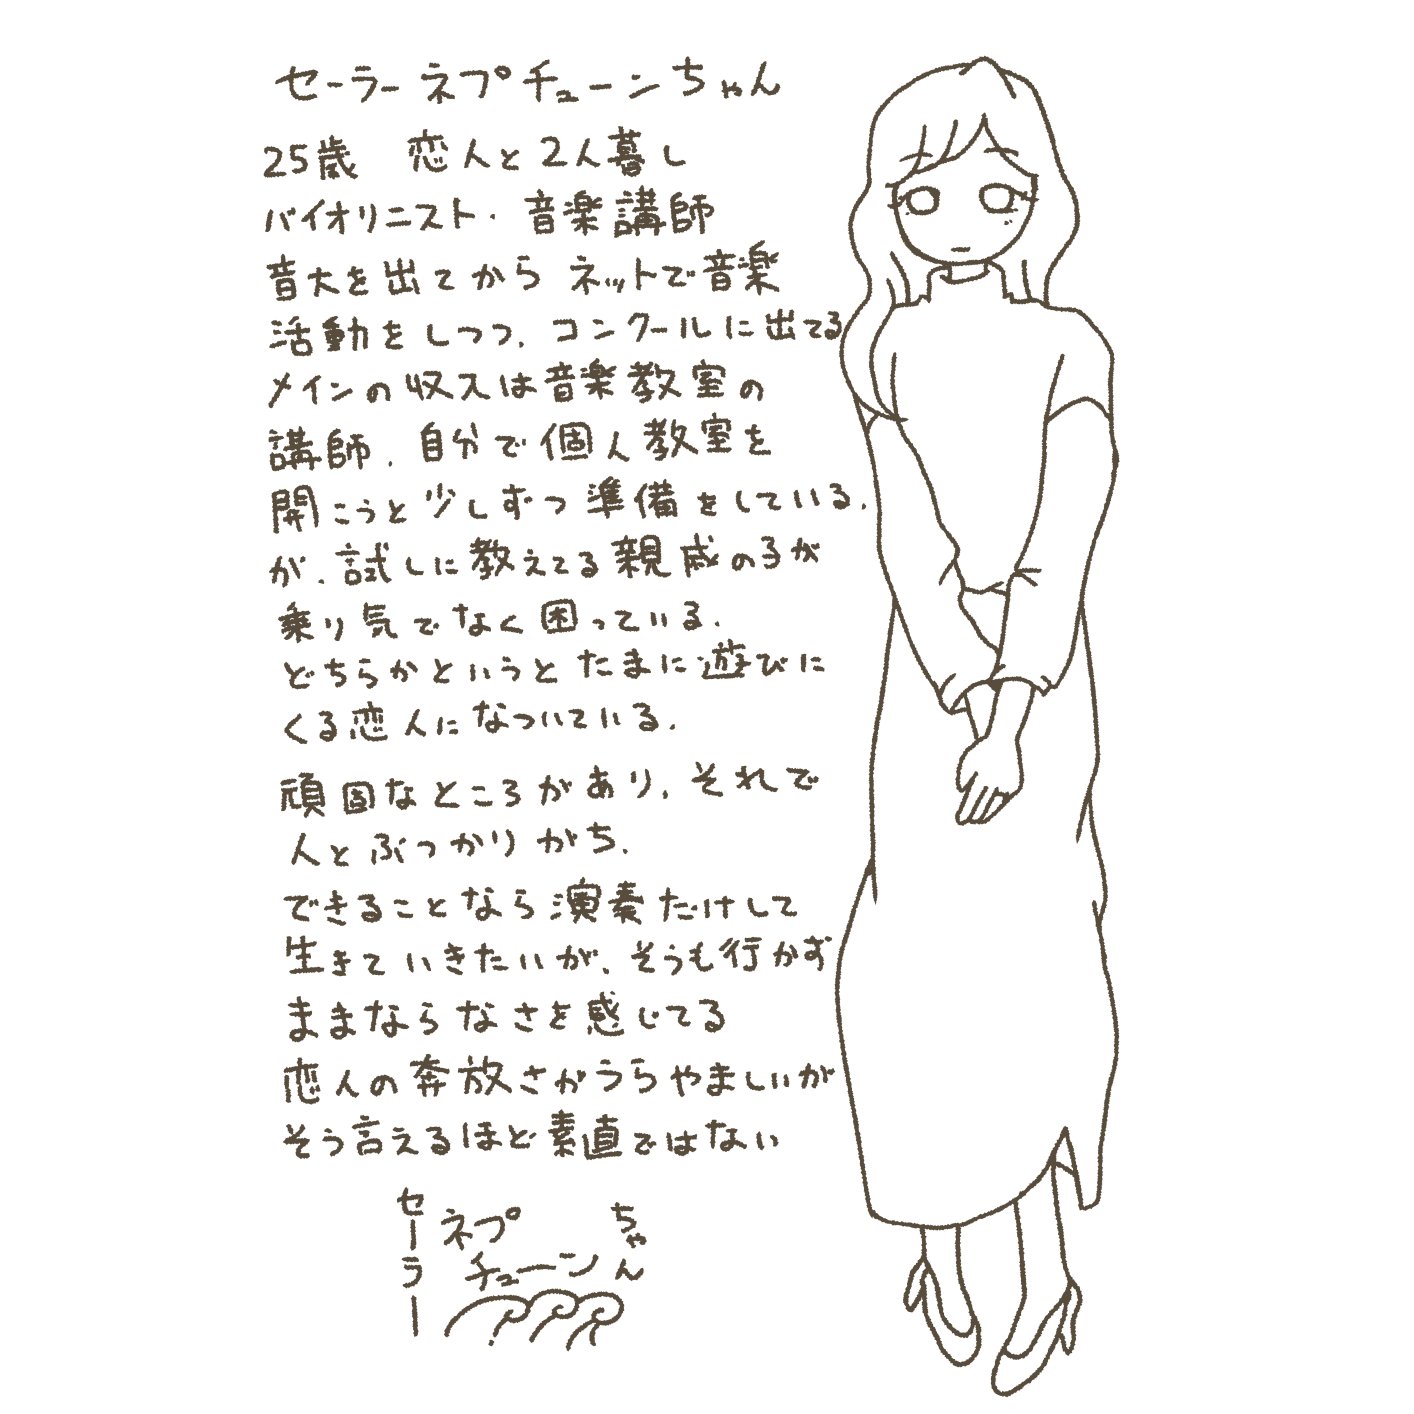 セーラーネプチューンちゃん
25歳 恋人と2人暮し
バイオリニスト・音楽講師
音大を出てから ネットで音楽
活動をしつつ、コンクールに出てる
メインの収入は音楽教室の
講師、自分で個人教室を
開こうと少しずつ準備をしている。
が、試しに教えてる親戚の子が
乗り気でなく困っている。
どちらかというとたまに遊びに
くる恋人になついている。
頑固なところがあり、それで
人とぶつかりがち。
できることなら演奏だけして
生きていきたいが、そうも行かず
ままならなさを感じてる
恋人の奔放さがうらやましいが
そう言えるほど素直ではない
セーラー
ネプ
チューン
ちゃん